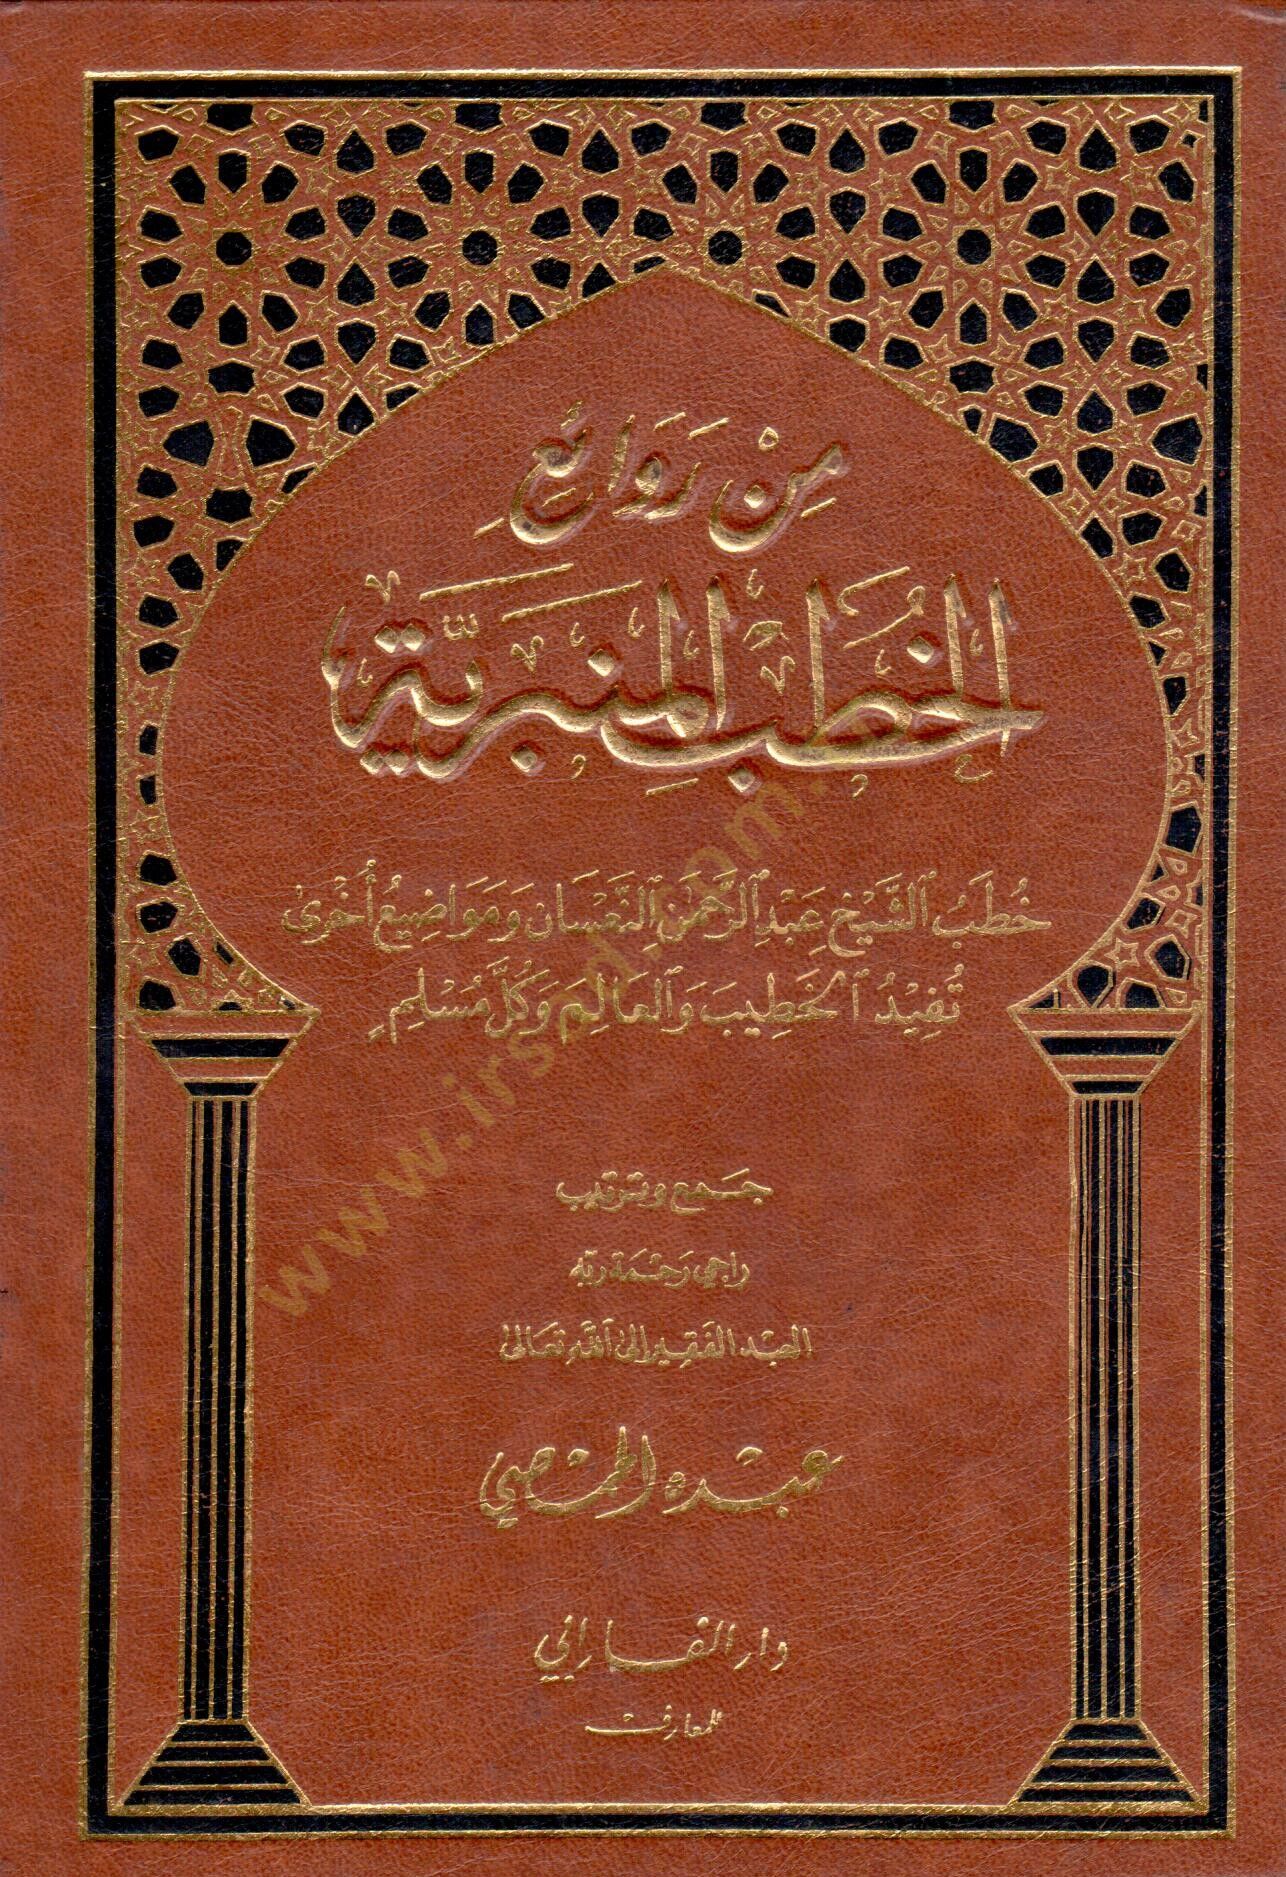 مِنْ رَوَائِعِ
الخُطَبِ المِنْبَرِيَّة
خُطَبُ ٱلشَّيْخِ عَبْدِ ٱلرَّحْمَنِ ٱلنَّعْسَانِ وَمَوَاضِيعُ أُخْرىٰ
تُفِيْدُ ٱلخَطِيبَ وَٱلعَالِمَ وَكُلَّ مُسْلِمٍ
جَمع وترتيب
راجي رَحْمَة ربّه
العَبْد الفَقير إلى اللهِ تعالىٰ
عبده الحمصي
دار الفارابي
للمعارف
www.irsad.com.